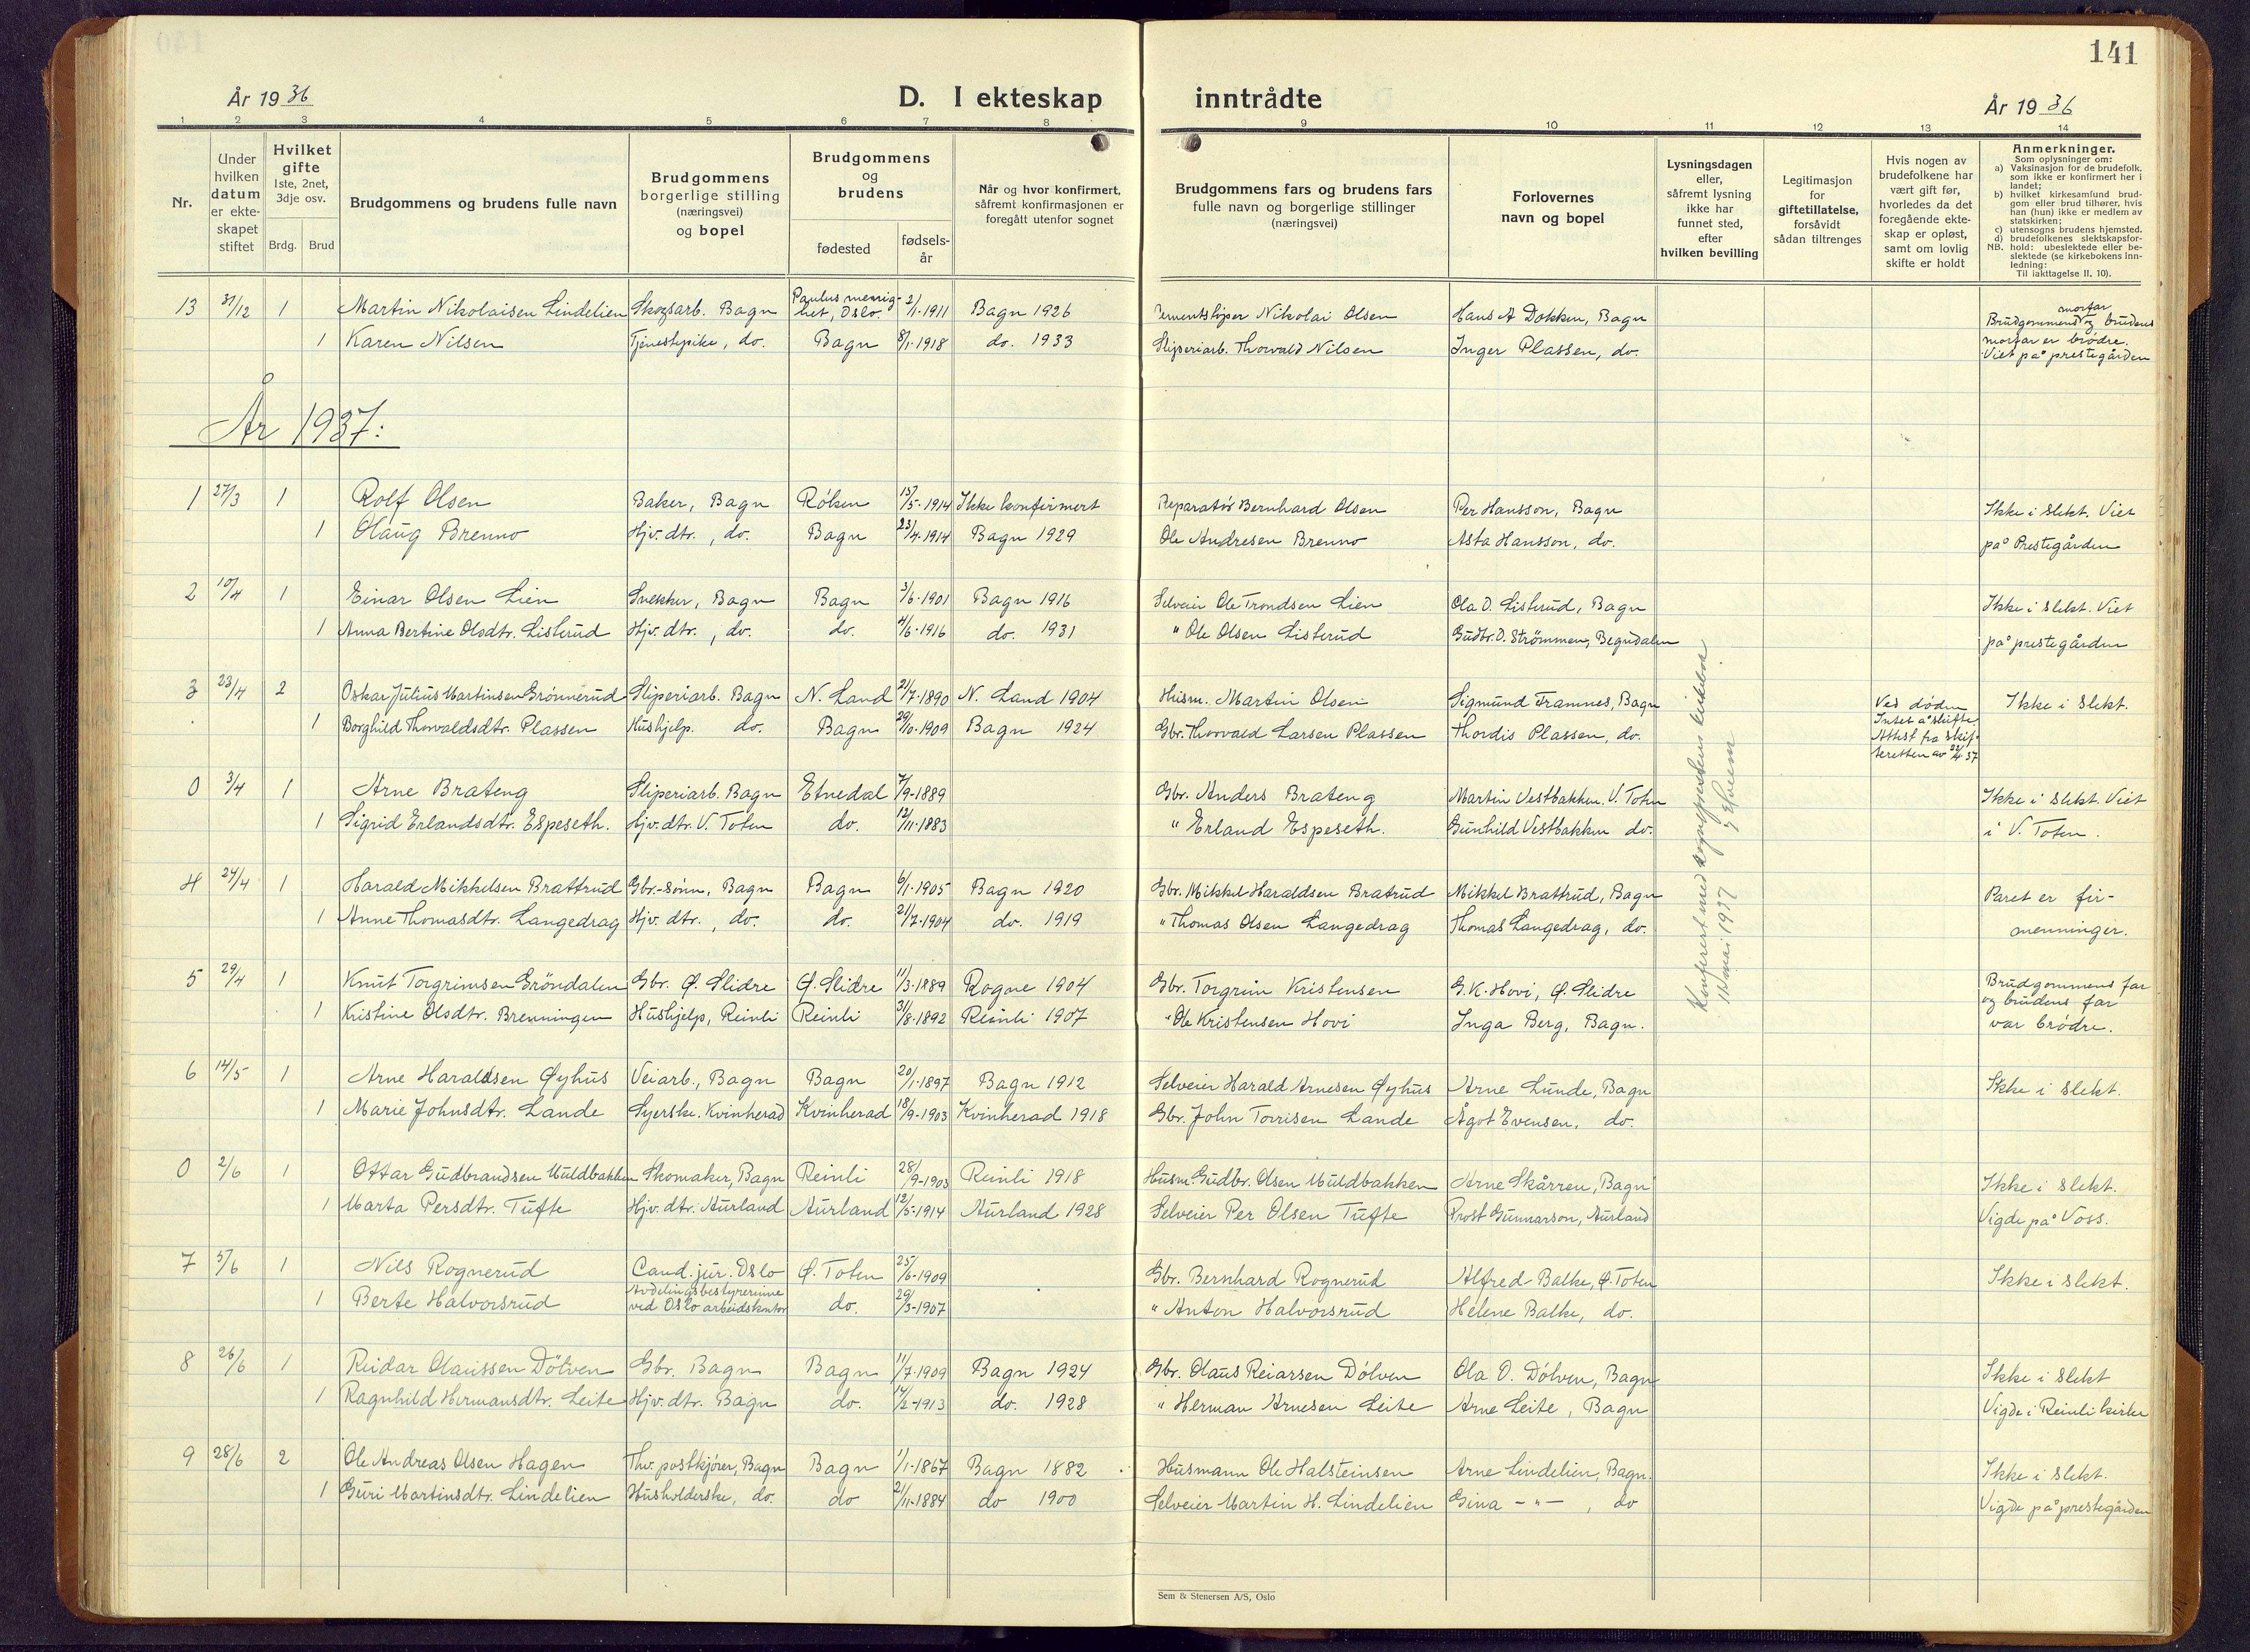 141
År 1936
D. I ekteskap inntrådte
År 1936
1 2 3 4 5 6 7 8 9 10 11 12 13 14
Nr.
Under hvilken datum er ekte-skapet stiftet
Hvilket gifte 1ste, 2net, 3dje osv.
Brdg. Brud
Brudgommens og brudens fulle navn
Brudgommens borgerlige stilling (næringsvei) og bopel
Brudgommens og brudens
fødested
fødsels-år
Når og hvor konfirmert, såfremt konfirmasjonen er foregått utenfor sognet
Brudgommens fars og brudens fars fulle navn og borgerlige stillinger (næringsvei)
Forlovernes navn og bopel
Lysningsdagen eller, såfremt lysning ikke har funnet sted, efter hvilken bevilling
Legitimasjon for giftetillatelse, forsåvidt sådan tiltrenges
Hvis nogen av brudefolkene har vært gift før, hvorledes da det foregående ekte-skap er opløst, samt om lovlig skifte er holdt
Anmerkninger.
Som oplysninger om:
a) Vaksinasjon for de brudefolk, som ikke er konfirmert her i landet;
b) hvilket kirkesamfund brud-gom eller brud tilhører, hvis han (hun) ikke er medlem av statskirken;
c) utensogns brudens hjemsted.
d) brudefolkenes slektskapsfor-
NB. hold: ubeslektede eller be-slektede (se kirkebokens inn-ledning:
Til iakttagelse II, 10).
13 31/12 1 Martin Nikolaisen Lindelien Skogsarb. Bagn Paulus menig-het, Oslo. 2/1-1911 Bagn 1926 Sementstøper Nikolai Olsen Hans A Dokken, Bagn Brudgommens morfar og brudens
1 Karen Nilsen Tjenestepike, do. Bagn 8/1-1918 do. 1933 Sliperiarb. Thorvald Nilsen Inger Plassen, do. morfar er brødre. Viet på prestegården
År 1937:
1 27/3 1 Rolf Olsen Baker, Bagn Røken 15/5-1914 Ikke konfirmert Reparatør Bernhard Olsen Per Hansson, Bagn Ikke i slekt. Viet
1 Olaug Brenno Hjv. dtr., do. Bagn 23/4-1914 Bagn 1929 Ole Andresen Brenno Asta Hansson, do. på Prestegården
2 10/4 1 Einar Olsen Lien Snekker, Bagn Bagn 3/6-1901 Bagn 1916 Selveier Ole Trondsen Lien Ola O. Listerud, Bagn Ikke i slekt. Viet
1 Anna Bertine Olsdtr. Listerud Hjv. dtr., do. do. 4/6-1916 do. 1931 " Ole Olsen Listerud Gudbr. O. Strømmen, Begndalen på prestegården
3 23/4 2 Oskar Julius Martinsen Grønnerud Sliperiarb. Bagn N. Land 21/7-1890 N. Land 1904 Husm. Martin Olsen Sigmund Framnes, Bagn Ved døden Ikke i slekt.
1 Borghild Thorvaldsdtr. Plassen Hushjelp. do. Bagn 29/10-1909 Bagn 1924 Gbr. Thorvald Larsen Plassen Thordis Plassen, do. Intet å skifte. Attest fra skif-teretten av 22/4-37
0 3/4 1 Arne Brateng Sliperiarb. Bagn Etnedal 7/9-1889 Gbr. Anders Brateng Martin Vestbakken. V. Toten Ikke i slekt. Viet
1 Sigrid Erlandsdtr. Espeseth. Hjv. dtr. V. Toten do. 12/11-1883 " Erland Espeseth. Gunhild Vestbakken do. i V. Toten.
4 24/4 1 Harald Mikkelsen Brattrud Gbr.-sønn, Bagn Bagn 6/1-1905 Bagn 1920 Gbr. Mikkel Haraldsen Bratrud Mikkel Brattrud, Bagn Paret er fir-
1 Anne Thomasdtr. Langedrag Hjv. dtr., do. do. 21/7-1904 do. 1919 " Thomas Olsen Langedrag Thomas Langedrag, do. menninger.
5 29/4 1 Knut Torgrimsen Grøndalen Gbr. Ø. Slidre Ø. Slidre 11/3-1889 Rogne 1904 Gbr. Torgrim Kristensen G. K. Hovi, Ø. Slidre Brudgommens far
1 Kristine Olsdtr. Brenningen Hushjelp, Reinli Reinli 31/8-1892 Reinli 1907 " Ole Kristensen Hovi Inga Berg, Bagn. og brudens far var brødre.
Konferert med sogneprestens kirkebok
11 mai 1937
6 14/5 1 Arne Haraldsen Øyhus Veiarb., Bagn Bagn 20/1-1897 Bagn 1912 Selveier Harald Arnesen Øyhus Arne Lunde, Bagn Ikke i slekt.
1 Marie Johnsdtr. Lande Syerske. Kvinherad Kvinherad 18/9-1903 Kvinherad 1918 Gbr. John Torrisen Lande Ågot Evensen, do.
0 2/6 1 Ottar Gudbrandsen Muldbakken Skomaker, Bagn Reinli 28/9-1903 Reinli 1918 Husm. Gudbr. Olsen Muldbakken Arne Skårren, Bagn Ikke i slekt.
1 Marta Persdtr. Tufte Hjv. dtr. Aurland Aurland 12/5-1914 Aurland 1928 Selveier Per Olsen Tufte Prost Gunnarson, Aurland Vigde på Voss.
7 5/6 1 Nils Rognerud Cand. jur. Oslo Ø. Toten 25/6-1909 Gbr. Bernhard Rognerud Alfred Balke, Ø. Toten Ikke i slekt.
1 Berte Halvorsrud Avdelingsbestyrerinne ved Oslo arbeidskontor do. 29/3-1907 " Anton Halvorsrud Helene Balke, do.
8 26/6 1 Reidar Olaussen Dölven Gbr. Bagn Bagn 11/7-1909 Bagn 1924 Gbr. Olaus Reiarsen Dølven Ola O. Dølven, Bagn Ikke i slekt
1 Ragnhild Hermansdtr. Leite Hjv. dtr. Bagn do. 14/2-1913 do. 1928 " Herman Arnesen Leite Arne Leite, Bagn Vigde i Reinli kirke
9 28/6 2 Ole Andreas Olsen Hagen Thv. postkjører, Bagn Bagn 1/1-1867 Bagn 1882 Husmann Ole Halsteinsen Arne Lindelien, Bagn. Ikke i slekt.
1 Guri Martinsdtr. Lindelien Husholderske, do. do 21/11-1884 do 1900 Selveier Martin H. Lindelien Gina - " - , do Vigde på prestegården
Sem & Stenersen A/S, Oslo